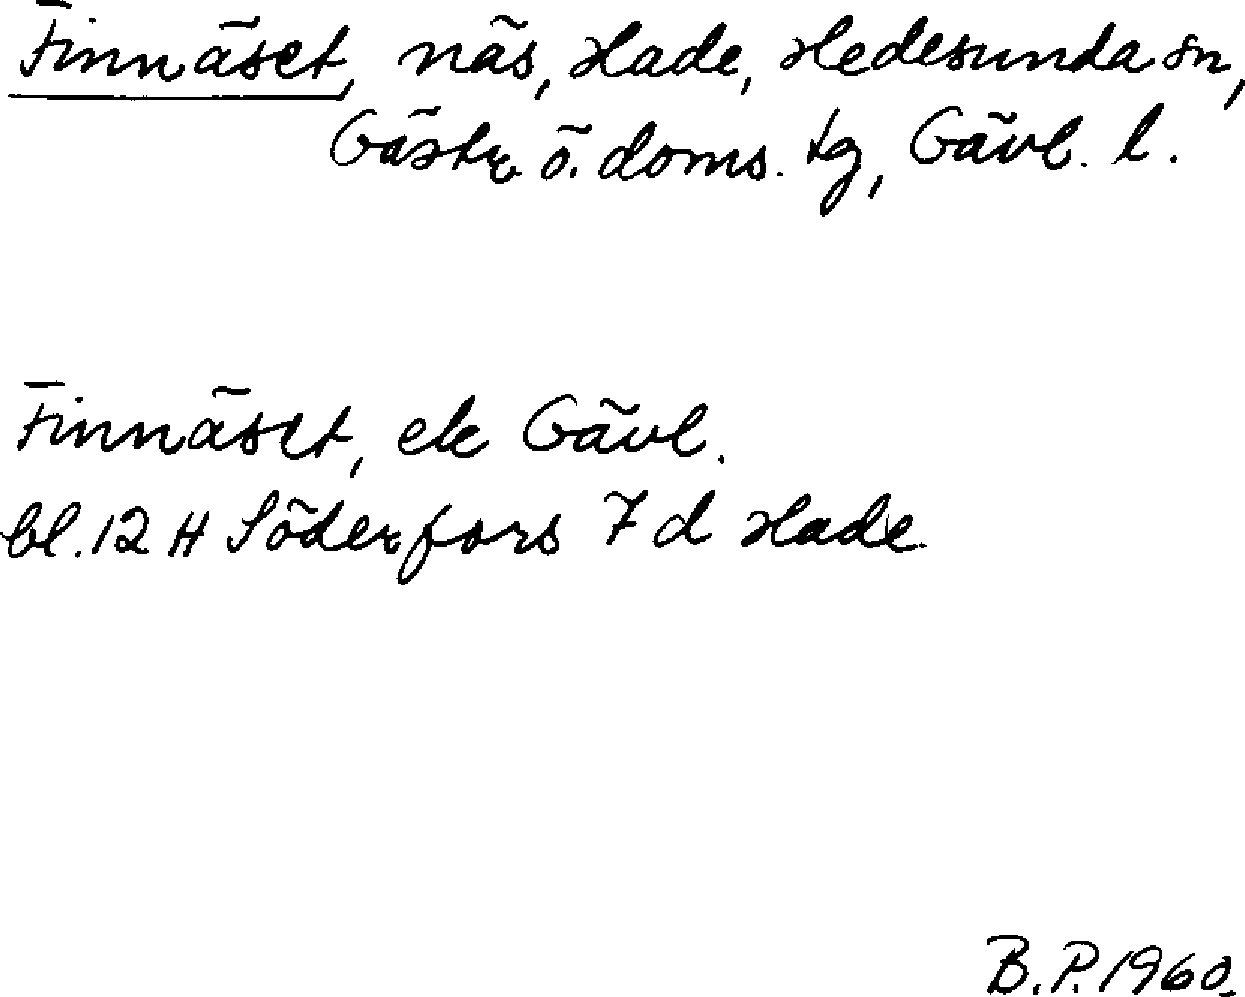 Finnäset, näs, Hade, Hedesunda sn,
Gästr. ö. doms. tg, Gävl. l.
Finnäset, ek Gävl.
bl. 12 H Söderfors 7 d Hade.
B.P. 1960.